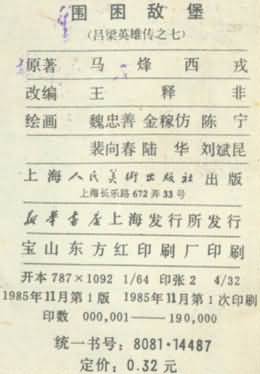 围困敌堡
(吕梁英雄传之七)
原著 马烽 西戎
改编 王释非
绘画 魏忠善 金稼仿 陈宁
裴向春 陆华 刘斌昆
上海人民美术出版社出版
上海长乐路672弄33号
新华书店上海发行所发行
宝山东方红印刷厂印刷
开本 787×1092 1/64 印张 2 4/32
1985年11月第1版 1985年11月第1次印刷
印数 000,001——190,000
统一书号: 8081·14487
定价: 0.32 元